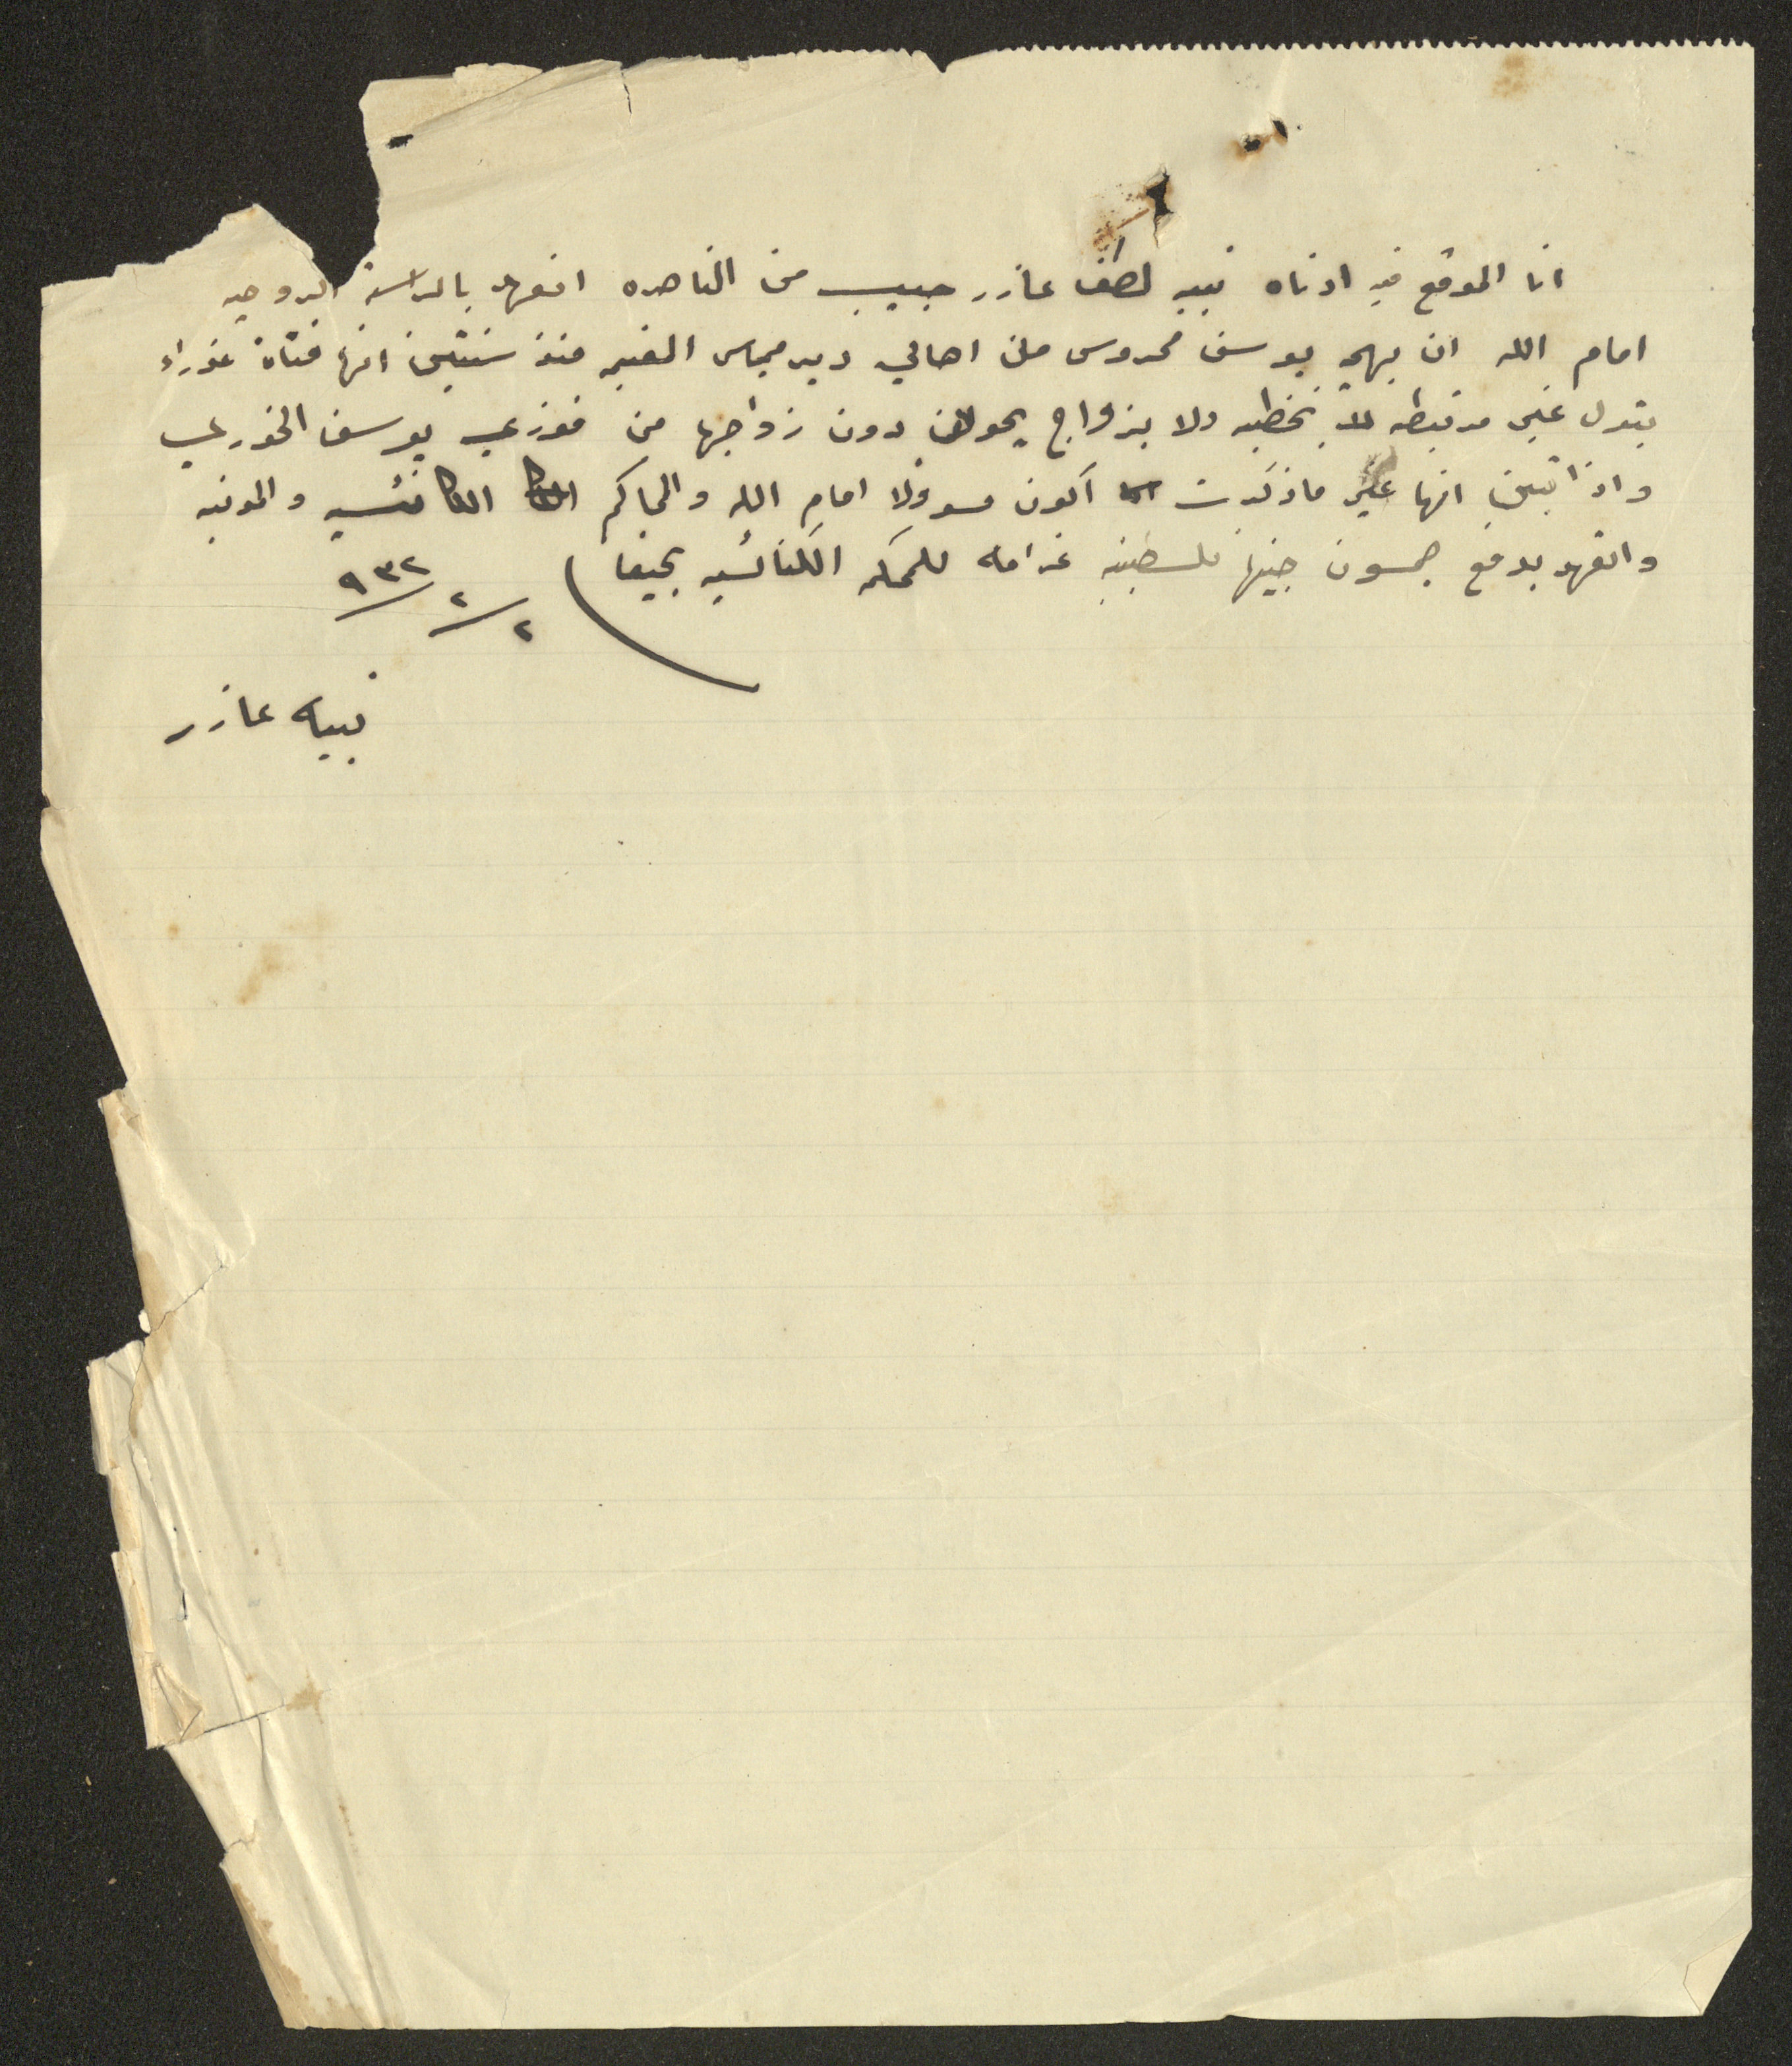 انا الموقع فيه ادناه نبيه لطف عازر حبيب من الناصره اتعهد بالدراسة الروحيه
امام الله ان بهجه يوسف محروس من اهالي ديرميماس المقيمه منذ سنتين انها فتاة عذراء
بتول غير مرتبطه لا بخطبه ولا بزواج يحولان دون زواجها من فوزي يوسف الخوري
واذا تبين انها غير ما ذكرت اكون مسؤولا امام الله والمحاكم الكنائسيه والمدنيه
واتعهد بدفع خمسون جنيها فلسطينيه غرامه للمحكمه الكنائسيه بحيفا ٢/٢/٩٣٢
نبيه عازر